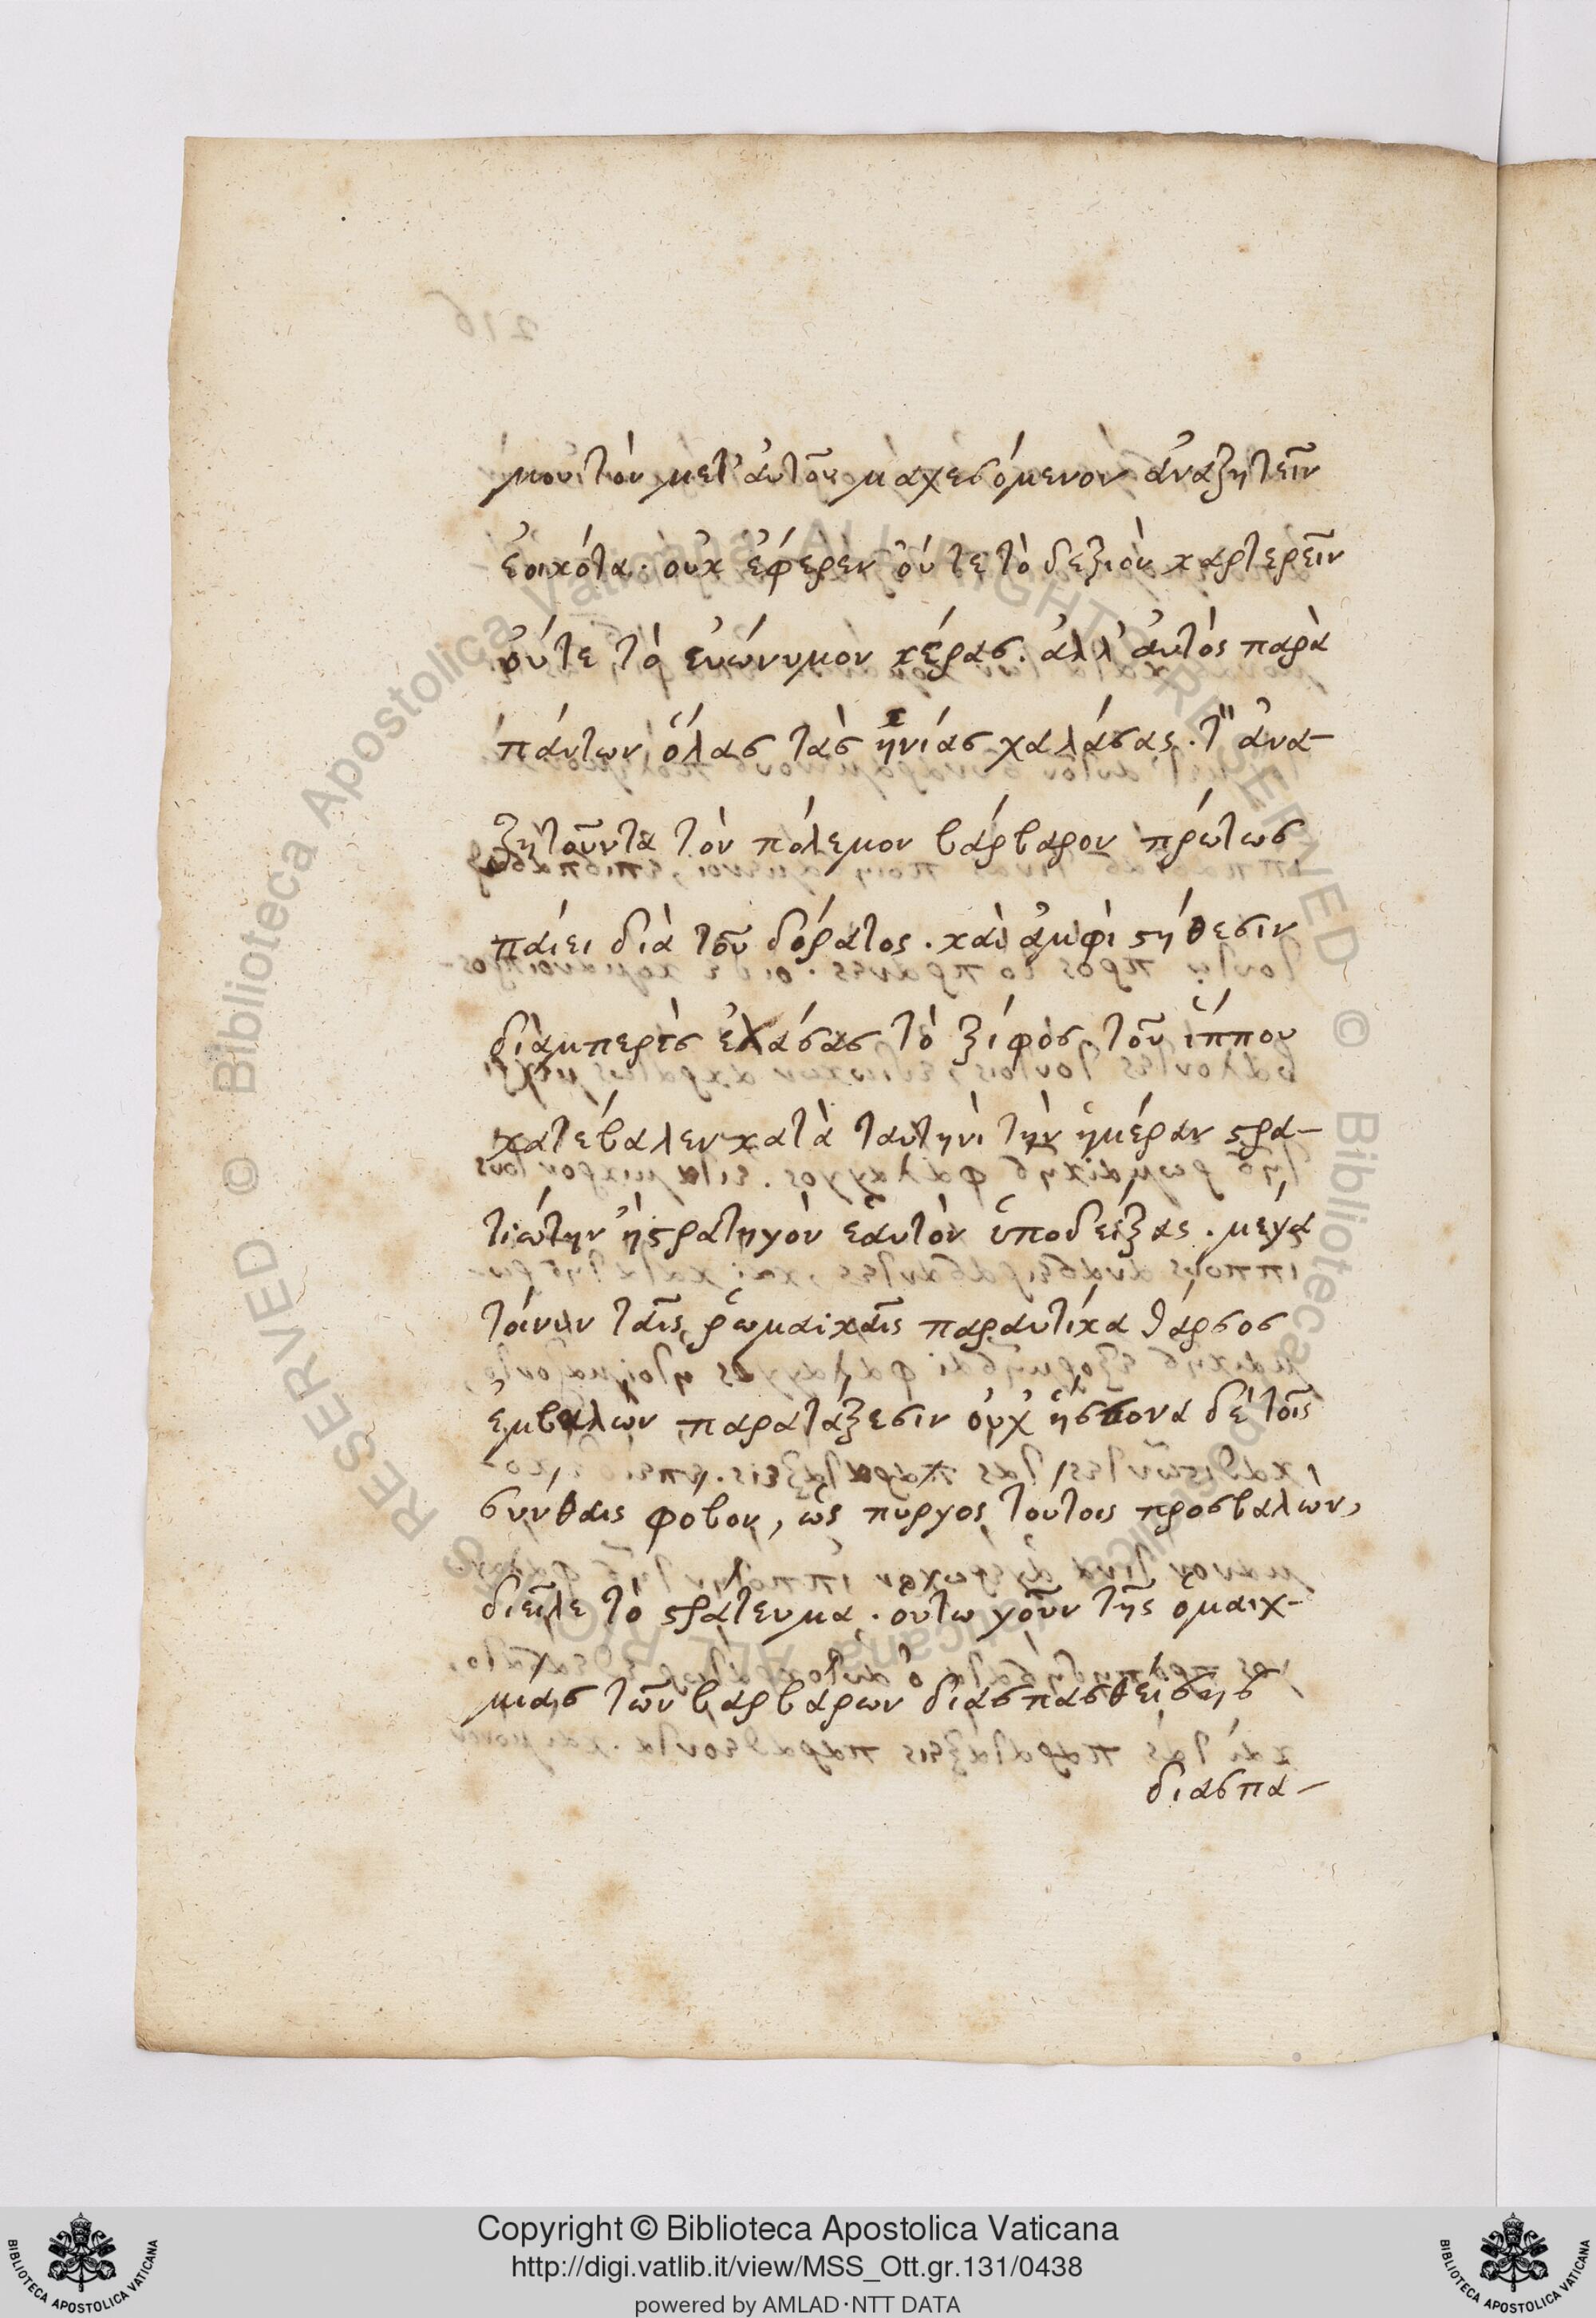 μουν τὸν μετ' ἀυτοῦ μαχεσόμενον ἀναζητεῖν
ἐοικότα. οὐκ ἐφέρεν οὔτε τὸ δεξιὸν καρτερεῖν
οὔτε τὸ εὐώνυμον κέρας. ἀλλ' ἀυτὸς παρὰ
πάντων ὅλας τὰς ἡνίας χαλάσας. τ̈ ἀνα-
ζητοῦντα τὸν πόλεμον βάρβαρον πρώτως
πάιει διὰ τοῦ δόρατος. καὶ ἀμφὶ στήθεσιν
διὰμπερὲς ἐλάσας τὸ ξίφος τοῦ ἵππου
κατέβαλεν κατὰ ταυτηνὶ τὴν ἡμέραν στρα-
τιώτην ἢ στρατηγὸν ἑαυτὸν ὑποδείξας. μέγα
τόινυν ταῖς ῥωμαικαῖς παραυτίκα θάρσος
ἐμβαλὼν παρατάξεσιν οὐχ ἥσσονα δὲ τοῖς
σκύθαις φόβον, ὡς πύργος τούτοις προσβαλὼν,
διεῖλε τὸ στράτευμα. ὅυτω γοῦν τῆς ομαιχ-
μιας τῶν βαρβάρων διασπασθείσης
διασπα-
216
Copyright © Biblioteca Apostolica Vaticana
http://digi.vatlib.it/view/MSS_Ott.gr.131/0438
powered by AMLAD·NTT DATA
BIBLIOTECA APOSTOLICA VATICANA
BIBLIOTECA APOSTOLICA VATICANA
© Biblioteca Apostolica Vaticana ALL RIGHTS RESERVED
© Biblioteca Apostolica Vaticana ALL RIGHTS RESERVED